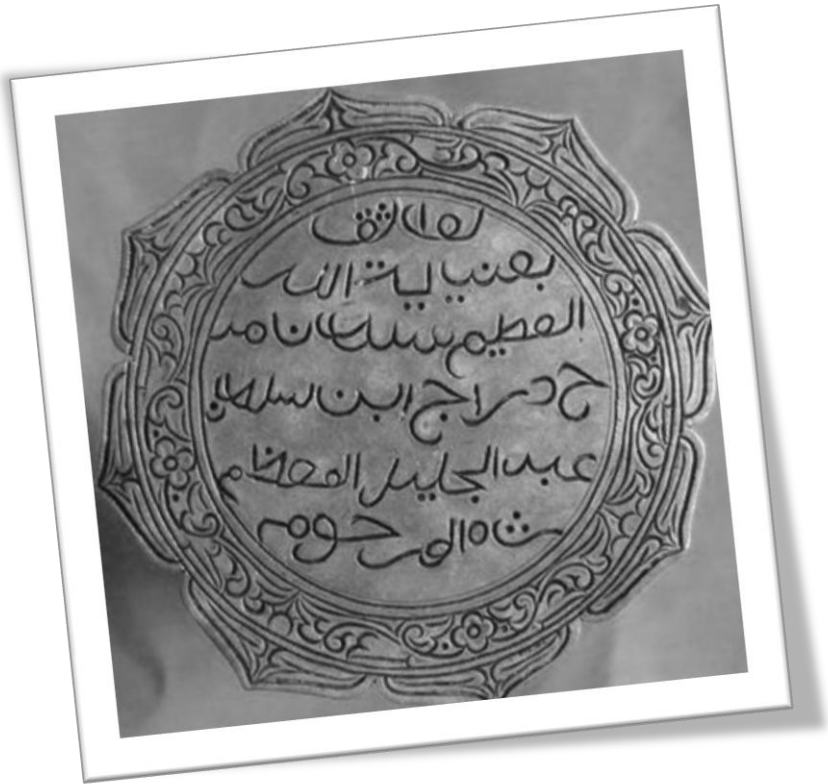 بعنياية الله
العظيم سلطان مد
ح دراج ابن سلطان
عبدالجليل المعظم
شاه المرحوم